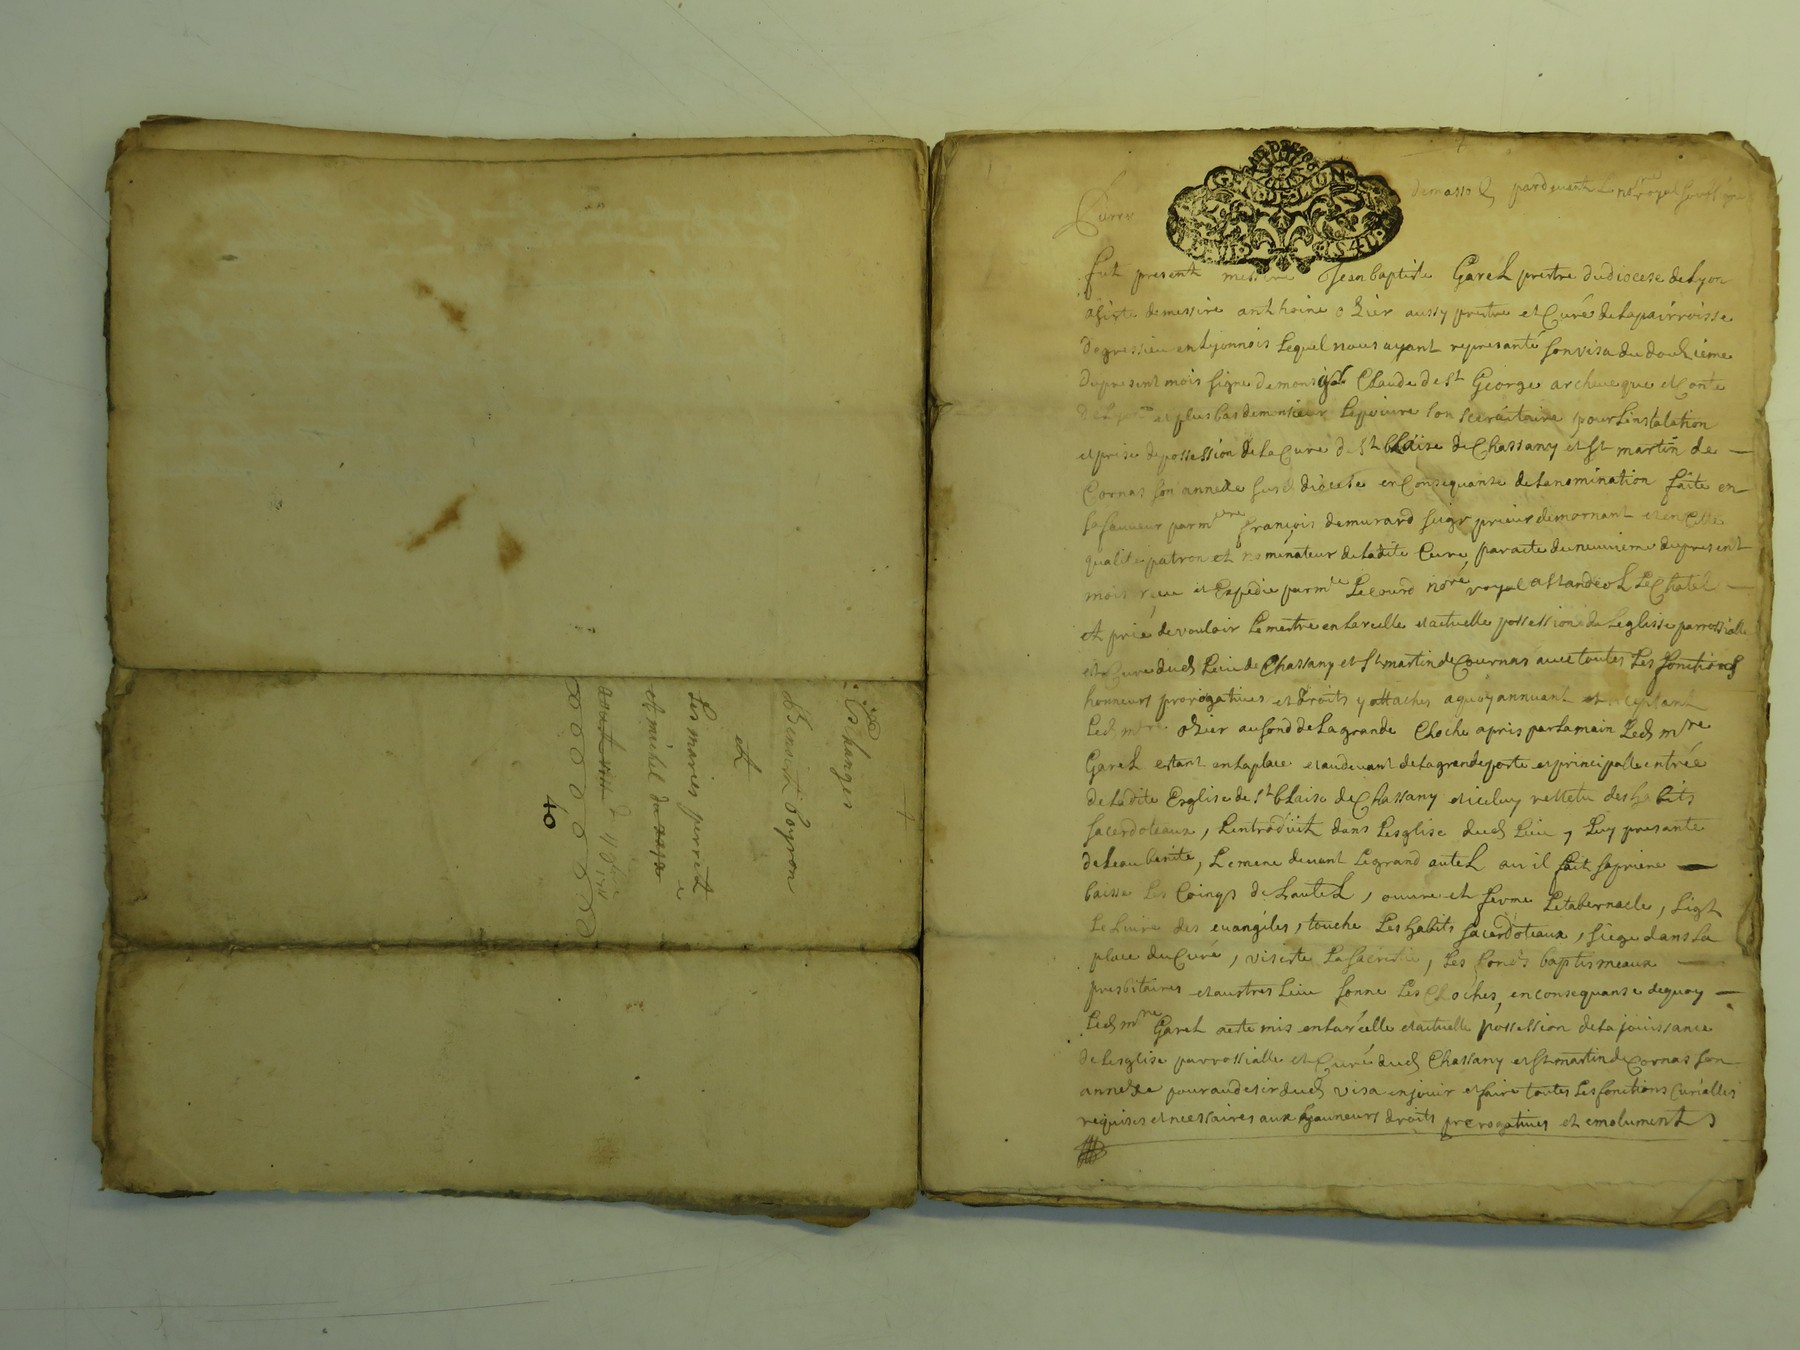 Eschanges
Benoist Poyron
et
Les maries perret
et michel
d 11
40
GN DE LION
furent
pardevant Le no.re royal
fut present messire Jean baptiste Garel prestre du diocese de Lyon
assisté de messire anthoine ozier aussy prestre et Curé de La pairroisse
degressieu en Lyonnois Lequel nous ayant represanté son visa du douzieme
du present mois signe de monsigr Claude de St George archeueque et Conte
de Lyon et plus bas de monsieur Lepoivre son secraitaire pour Linstalation
et prise de possession de La Cure de St blaise de Chassany et St martin de
Cornas son annexe susd diocese en Consequanse de La nomination faite en
sa faueur par m.re françois demurard seigr prieur de mornant et en Cette
qualite patron et nominateur de Ladite Cure par acte du neuvieme du present
mois receu et Expedie par m.e Lecourd no.re royal a St andeol Le Chatel
et prie de vouloir Le mettre en La reelle et actuelle possession de Leglisse parrossialle
et Cure dud Lieu de Chassany et St martin de Cournas auec toutes Les fonctions
honneurs prorogatives et droits y attaches aquoy annuant et acceptant
Led m.re ozier au son de La grande Cloche a pris par La main Led m.re
Garel estant en La place et au deuant de La grande porte et principalle entrée
de Ladite Esglise de St blaise de Chassany et iceluy vettetu des habits
sacerdoteaux, Lentroduit dans Lesglise dud Lieu, Luy presante
de Leau benite, Le mene deuant Le grand autel ou il fait sa priere
baisse Les Coings de Lautel, ouure et ferme Le tabernacle, Ligt
Le Liure des euangiles, touche Les habits sacerdoteaux, siege dans La
place du Curé, visiste La sacristie, Les fonds baptismeaux
presbitaires et austres Lieu sonne Les Cloches, en consequanse dequoy
Led m.re Garel a este mis en La reelle et actuelle possession de La jouissance
de Lesglise parrossialle et Cure dud Chassany et St martin de Cornas son
annexe pour au desir dud visa en jouir et faire toutes Les fonctions Curialles
requises et necessaires aux hauneurs droits prerogatiues et emoluments